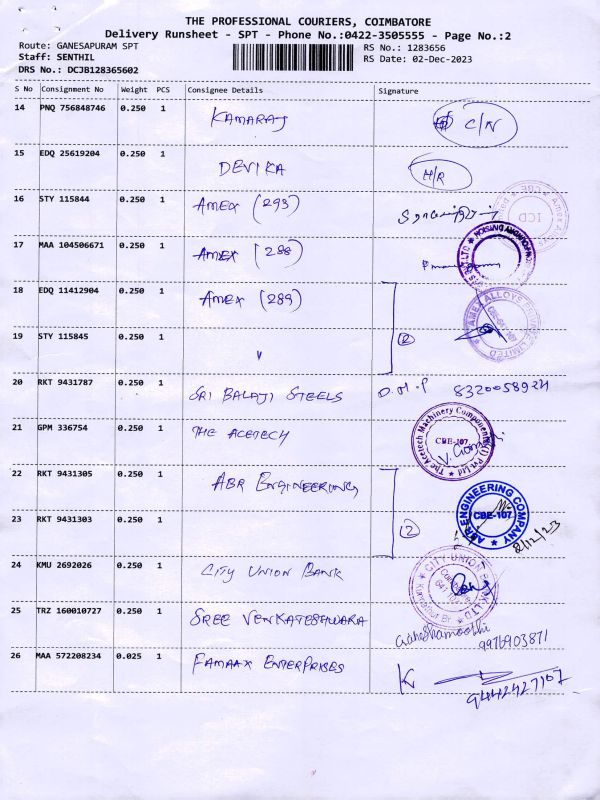 THE PROFESSIONAL COURIERS, COIMBATORE
Delivery Runsheet - SPT - Phone No.:0422-3505555 - Page No.:2
Route: GANESAPURAM SPT
RS No.: 1283656
Staff: SENTHIL
RS Date: 02-Dec-2023
DRS No.: DCJB128365602
S No Consignment No Weight PCS Consignee Details Signature
14 PNQ 756848746 0.250 1 KAMARAJ C/N
15 EDQ 25619204 0.250 1 DEVIKA H/R
16 STY 115844 0.250 1 AMEX (293)
ICD
17 MAA 104506671 0.250 1 AMEX (288)
18 EDQ 11412904 0.250 1 AMEX (289)
AMEX ALLOYS PRIVATE LIMITED
19 STY 115845 0.250 1 " (2)
20 RKT 9431787 0.250 1 SRI BALAJI STEELS 8320058924
21 GPM 336754 0.250 1 THE ACETECH
The Acetech Machinery Components (I) Pvt Ltd
CBE-107
22 RKT 9431305 0.250 1 ABR ENGINEERING
ABR ENGINEERING COMPANY
CBE-107
23 RKT 9431303 0.250 1 (2) 2/12/23
24 KMU 2692026 0.250 1 CITY UNION BANK
CITY UNION BANK LTD
25 TRZ 160010727 0.250 1 SREE VENKATESHWARA
9976903871
26 MAA 572208234 0.025 1 FAMAAX ENTERPRISES K
9442427107